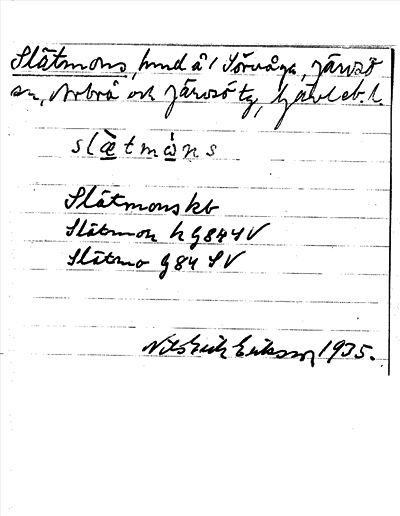 Slåtmons, hmd å 1 Sörvåga, Järvsö
sn, Arbrå och Järvsö tg, Gävleb. l.
slæ̀tmò̱ns
Slåtmonskb
Slåtmon h G84 SV
Slåtmo G84 SV
Nils Erik Eriksson, 1935.